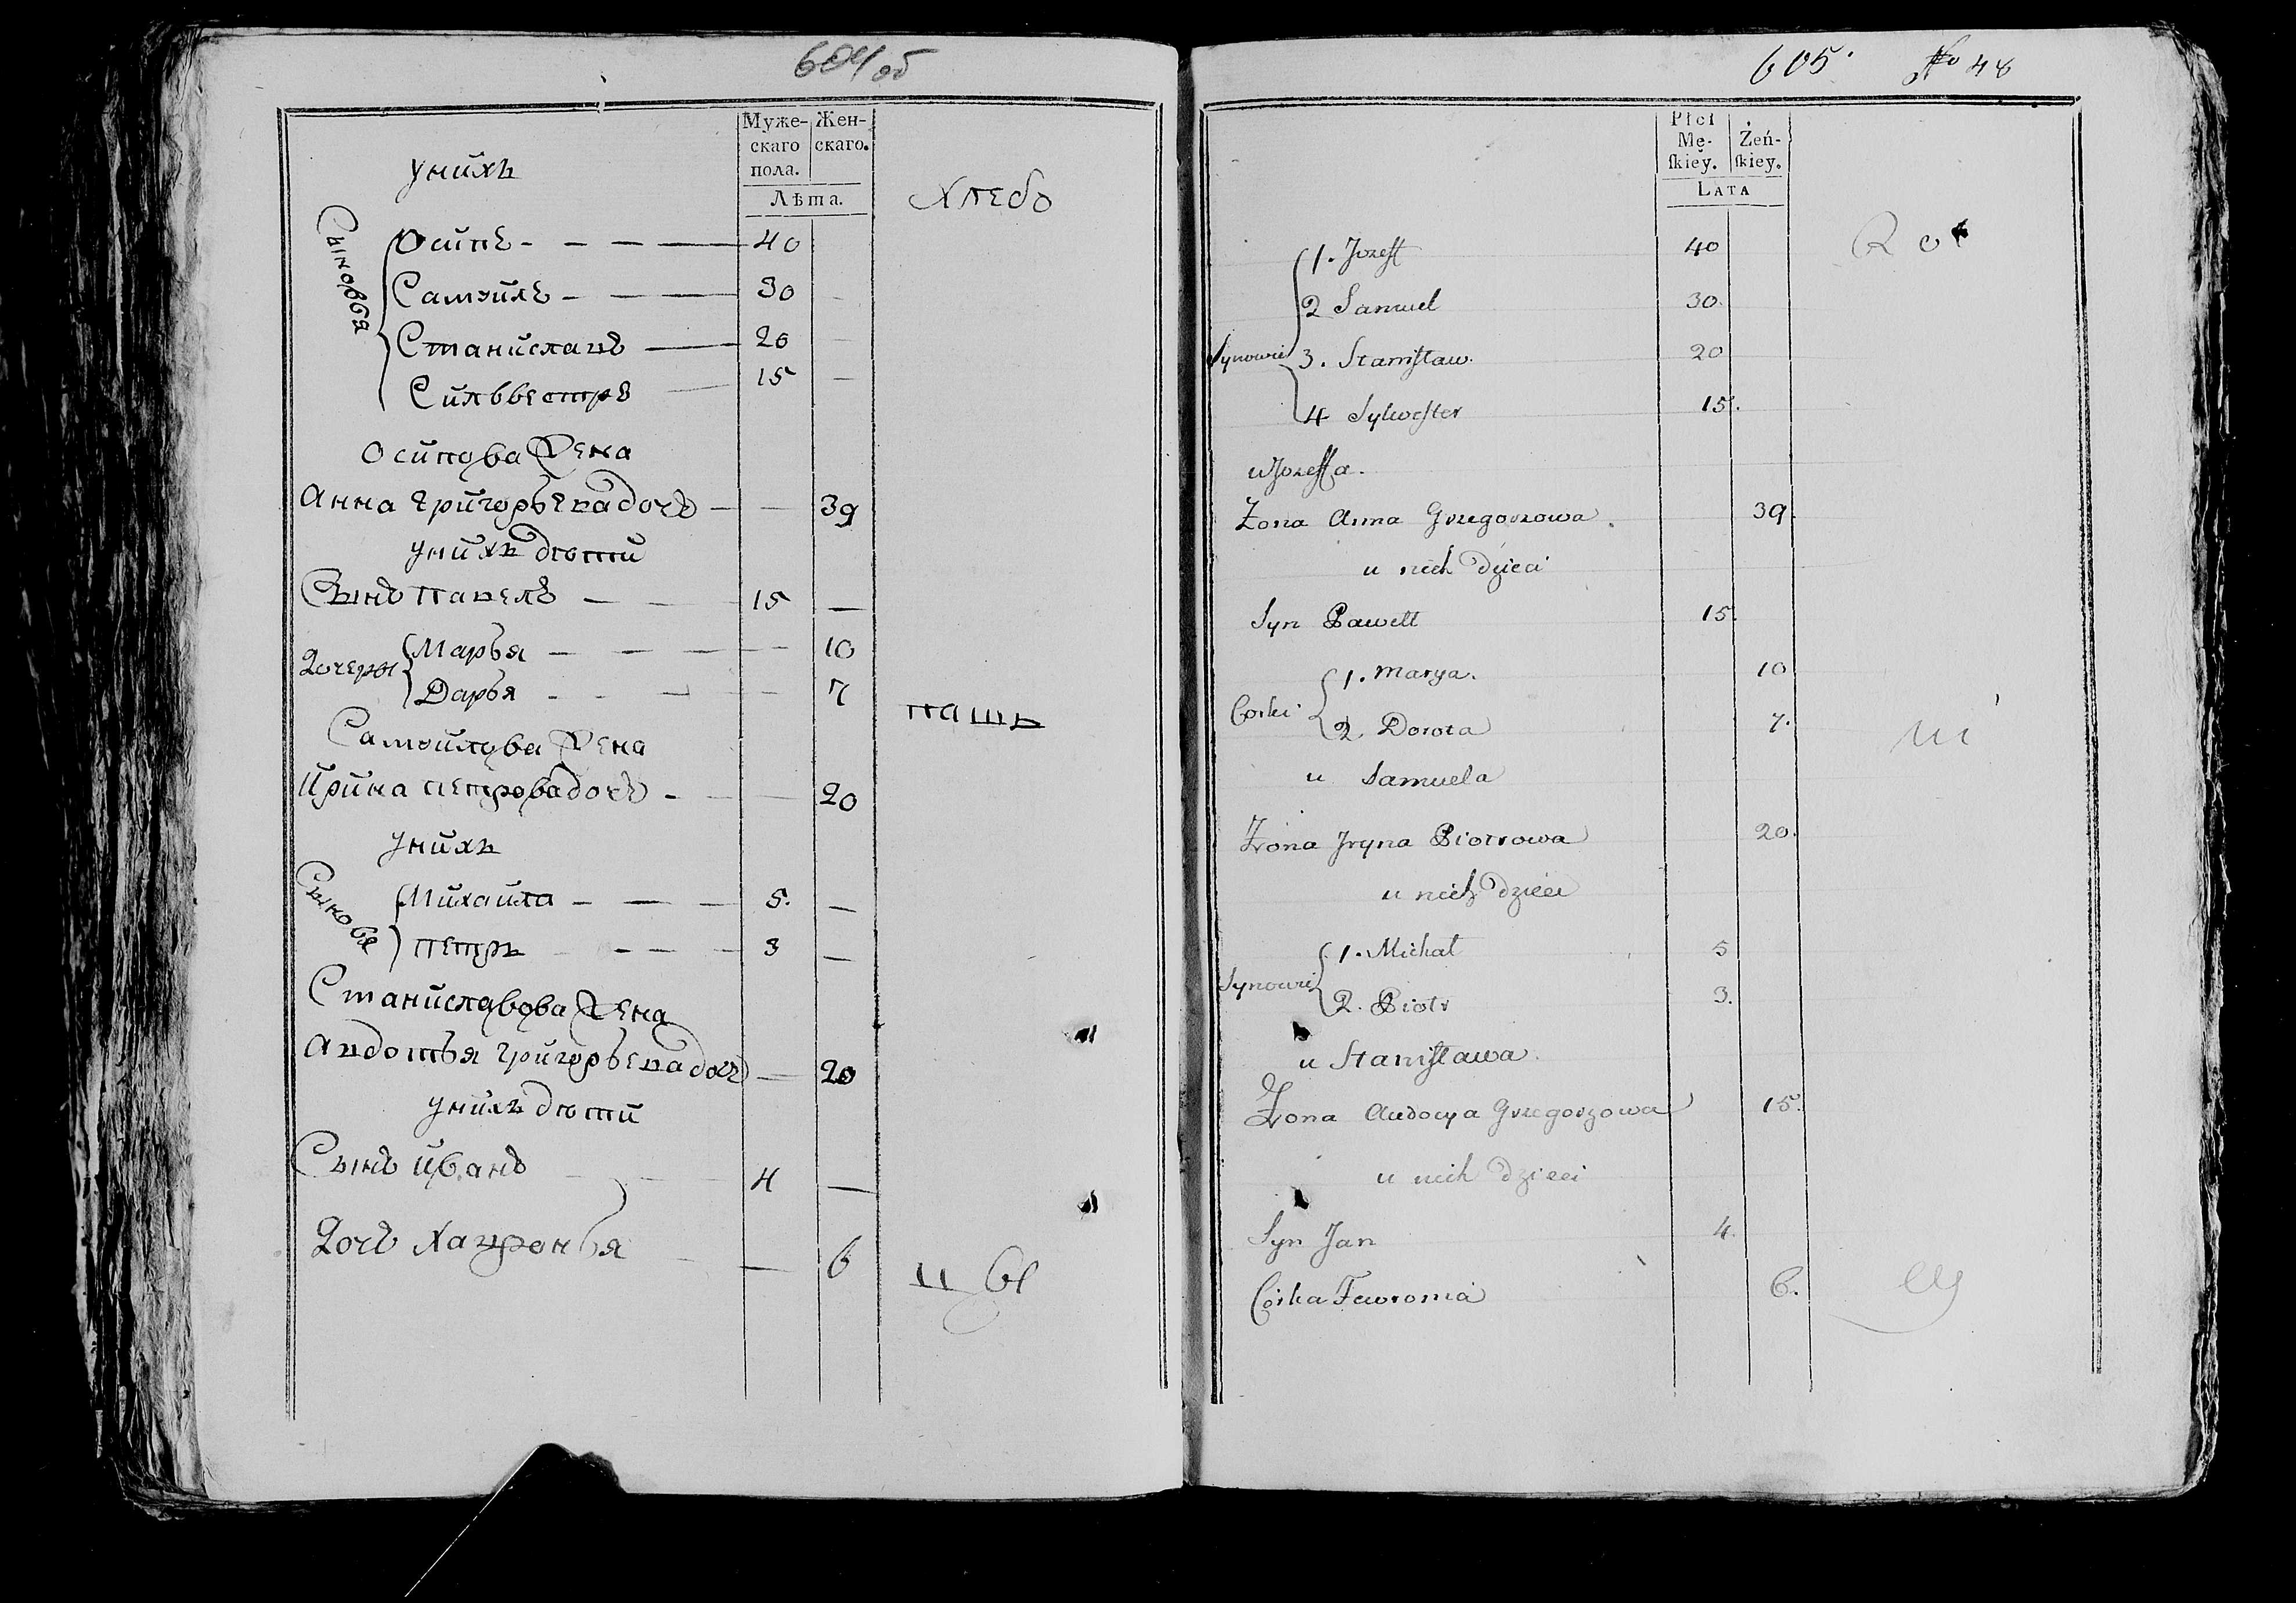 604 об
Муже-
скаго
пола.
Жен-
скаго.
Лѣта.
унихъ
Хлебо
Сыновья
Осипъ - - - - 40
Самойлъ - - - 30 -
Станиславъ - 20 -
Сильвестръ - 15 -
Осипова Жена
Анна григорьева дочь - - 39
унихъ дѣти
Сынъ павелъ - - 15 -
Дочери
Марья - - - - - 10
Дарья - - - - 7
пашъ
Самойлова Жена
Ирина петрова дочь - - 20
унихъ
Сыновья
Михайла - - - 5. -
петръ - - - 3 -
Станиславова Жена
Авдотья григорьева дочь - 20
унихъ дѣти
Сынъ иванъ - - - 4 -
Дочь Хавронья - - 6
цы
605. No 48
Płci
Mę-
ſkiеy.
Żeń-
ſkiey.
LATA
Synowie
1. Jozeff 40
2 Samuel 30.
3. Staniſław. 20
4 Sylweſter 15.
u Jozeffa.
Żona Anna Grzegorzowa. 39.
u nich dzieci
Syn Pawełł 15.
Corki
1. Marya. 10
2. Dorota 7.
ni
u Samuela
Żona Jryna Piotrowa 20.
u nich dzieci
Synowie
1. Michał 5
2. Piotr 3.
u Staniſława.
Żona Audocya Grzegorzowa 15.
u nich dzieci
Syn Jan 4.
Corka Fewronia 6.